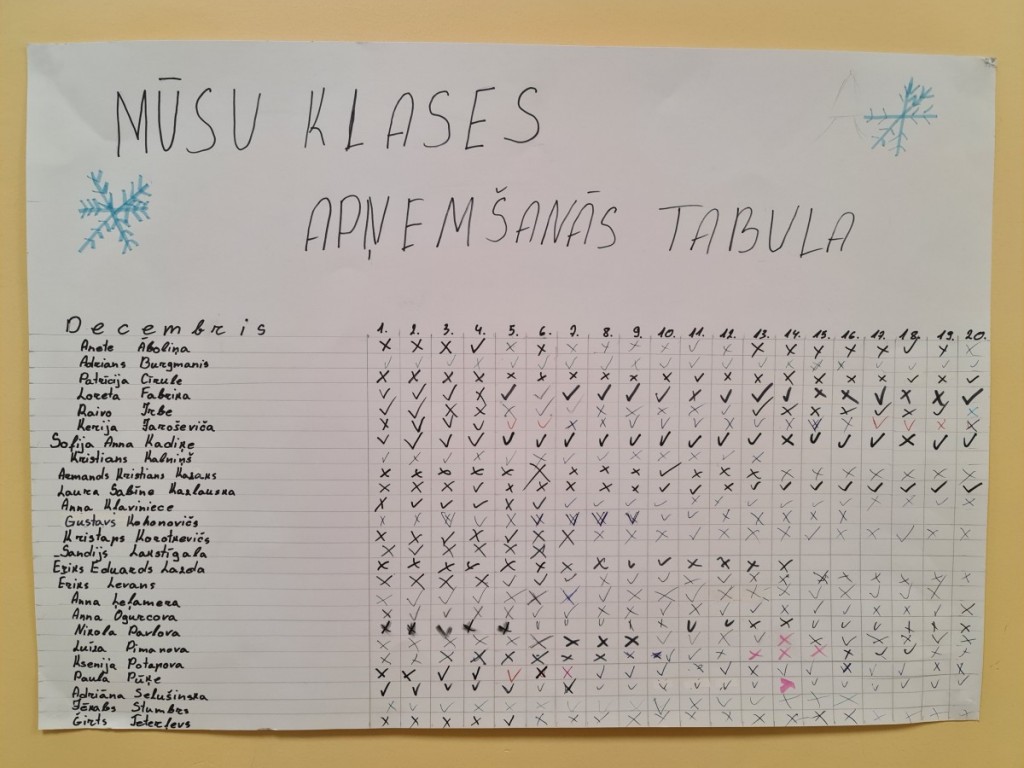 MŪSU KLASES
APŅEMŠANĀS TABULA
Decembris 1. 2. 3. 4. 5. 6. 7. 8. 9. 10. 11. 12. 13. 14. 15. 16. 17. 18. 19. 20.
Anete Āboliņa
Adrians Burgmanis
Patrīcija Cīrule
Loreta Fabrika
Raivo Irbe
Kerija Jaroševiča
Sofija Anna Kadiķe
Kristians Kalniņš
Armands Kristians Kazaks
Laura Sabīne Kazlovska
Anna Kļaviniece
Gustavs Kohonovičs
Kristaps Korotkevičs
Sandijs Lakstīgala
Ēriks Eduards Lazda
Eriks Levans
Anna
Anna Ogurcova
Nikola Pavlova
Luīza Pimanova
Ksenija Potapova
Paula Pūķe
Adriāna Selušinska
Jēkabs Stumbrs
Girts